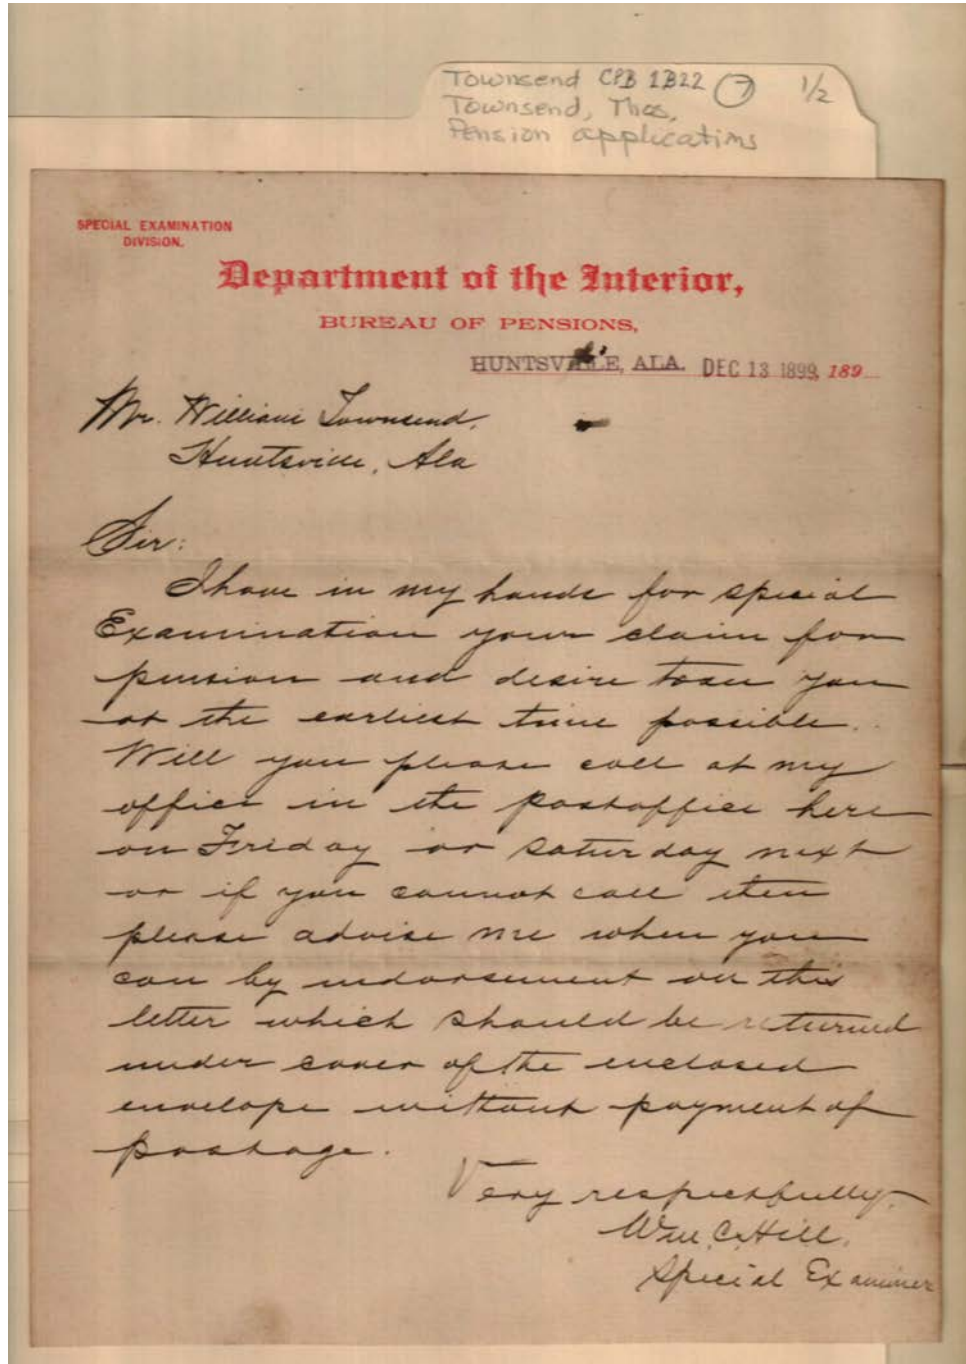 Townsend CPB 1B22 7 1/2
Townsend, Thos,
Pension applications
SPECIAL EXAMINATION
DIVISION.
Department of the Interior,
BUREAU OF PENSIONS,
HUNTSVILLE, ALA. DEC 13 1899, 189
Mr. William Townsend,
Huntsville, Ala
Sir:
I have in my hands for special
Examination your claim for
pension and desire to see you
at the earliest time possible.
Will you please call at my
office in the postoffice here
on Friday or Saturday next
or if you cannot call then
please advise me when you
can by indorsement on this
letter which should be returned
under cover of the enclosed
envelope without payment of
postage.
Very respectfully,
Wm. C. Hill,
Special Examiner